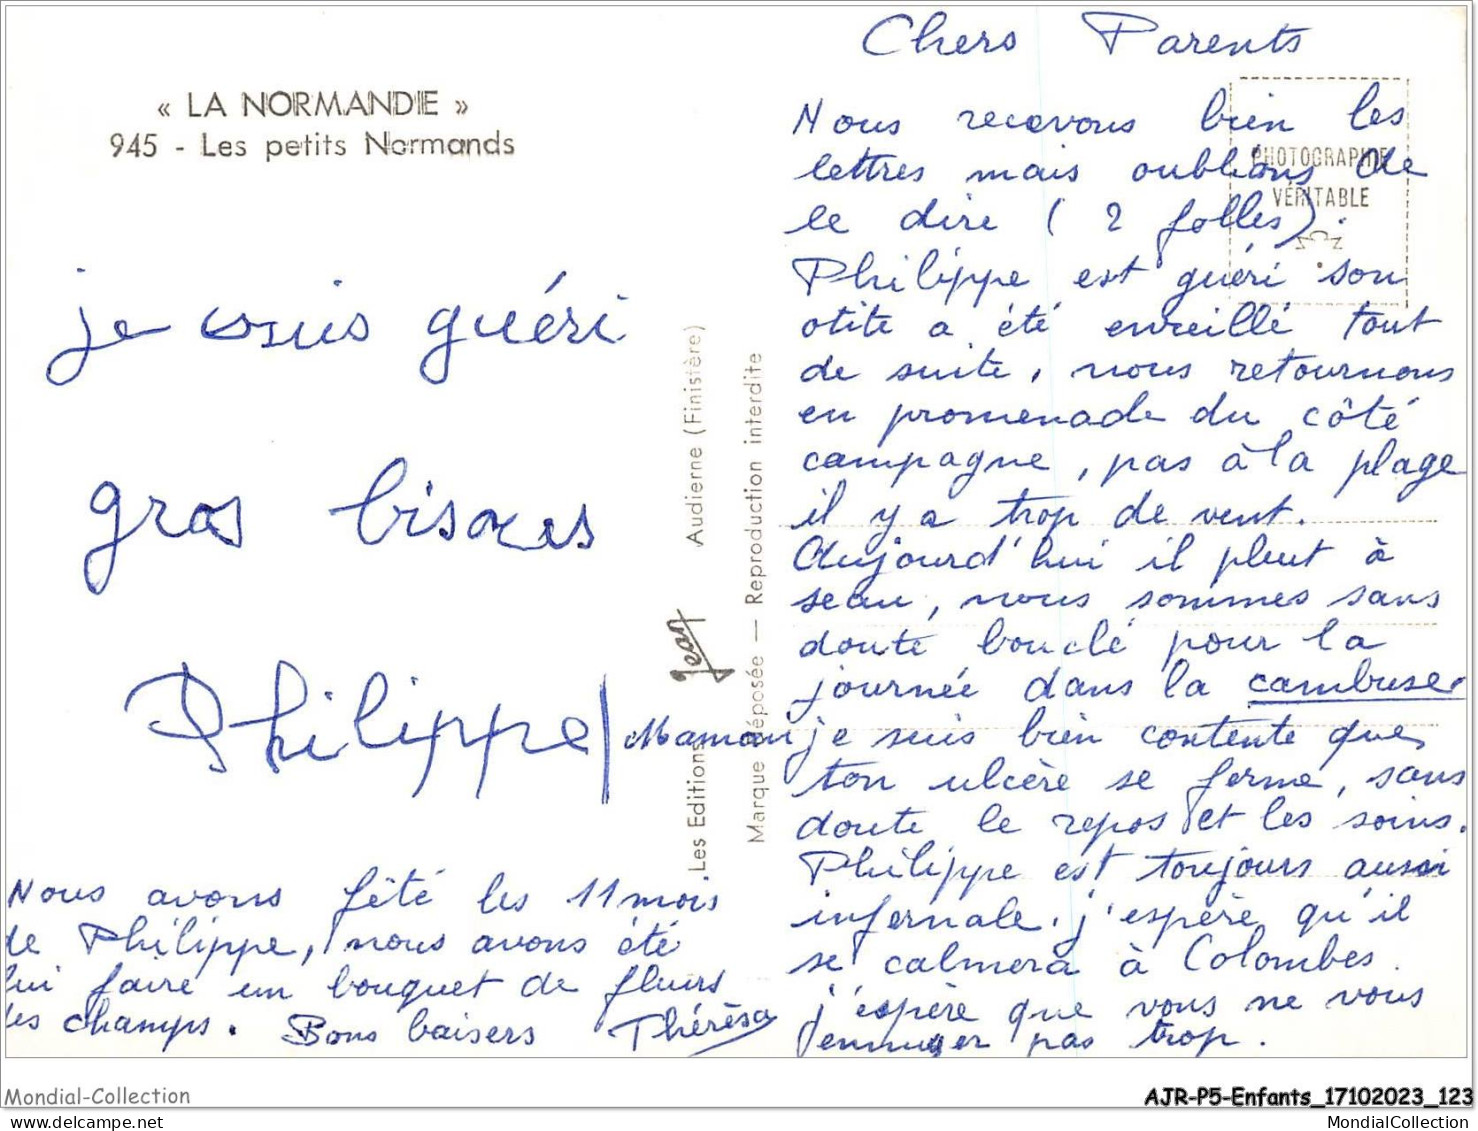 « LA NORMANDIE »
945 - Les petits Normands
je suis guéri
gros bisous
Philippe
Nous avons fêté les 11 mois
de Philippe, nous avons été
lui faire un bouquet de fleurs
des champs. Bons baisers Thérèse
Les Editions Jean Audierne (Finistère)
Marque déposée — Reproduction interdite
PHOTOGRAPHIE
VÉRITABLE
Chers Parents
Nous recevons bien les
lettres mais oublions de
le dire (2 folles).
Philippe est guéri son
otite a été enreillé tout
de suite, nous retournons
en promenade du côté
campagne, pas à la plage
il y a trop de vent.
Aujourd'hui il pleut à
seau, nous sommes sans
doute bouclé pour la
journée dans la cambuse
Maman je suis bien contente que
ton ulcère se ferme, sans
doute le repos et les soins.
Philippe est toujours aussi
infernale. j'espère qu'il
se calmera à Colombes.
j'espère que vous ne vous
ennuyer pas trop.
Mondial-Collection
AJR-P5-Enfants_17102023_123
MondialCollection